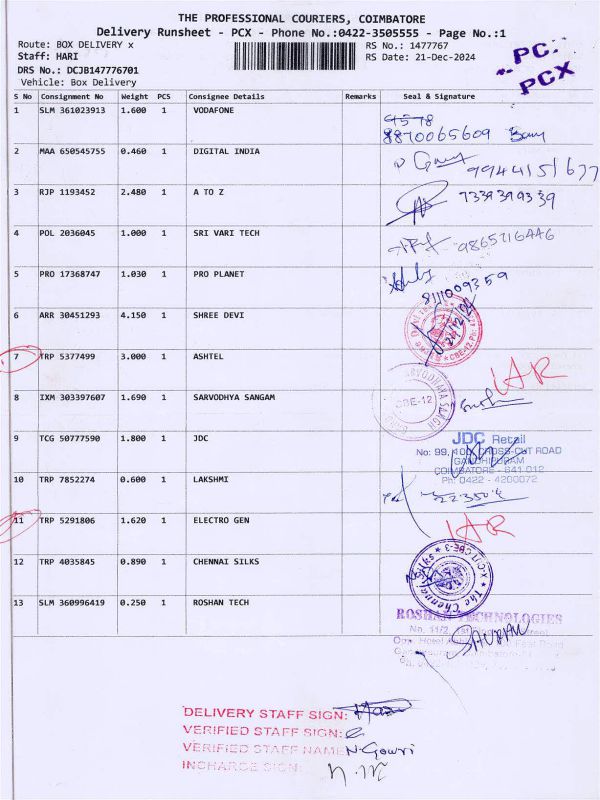 THE PROFESSIONAL COURIERS, COIMBATORE
Delivery Runsheet - PCX - Phone No.:0422-3505555 - Page No.:1
Route: BOX DELIVERY x
RS No.: 1477767
Staff: HARI
RS Date: 21-Dec-2024
DRS No.: DCJB147776701
Vehicle: Box Delivery
PCX
S No Consignment No Weight PCS Consignee Details Remarks Seal & Signature
1 SLM 361023913 1.600 1 VODAFONE
8870065609
2 MAA 650545755 0.460 1 DIGITAL INDIA
9944151677
3 RJP 1193452 2.480 1 A TO Z
7339399339
4 POL 2036045 1.000 1 SRI VARI TECH
9865716446
5 PRO 17368747 1.030 1 PRO PLANET
8111009359
6 ARR 30451293 4.150 1 SHREE DEVI
CBE-12
7 TRP 5377499 3.000 1 ASHTEL
IAR
8 IXM 303397607 1.690 1 SARVODHYA SANGAM
SARVODHAYA SANGH
CBE-12
9 TCG 50777590 1.800 1 JDC
JDC Retail
No: 99, 100, CROSS-CUT ROAD
GANDHIPURAM
COIMBATORE - 641 012
Ph: 0422 - 4200072
10 TRP 7852274 0.600 1 LAKSHMI
11 TRP 5291806 1.620 1 ELECTRO GEN
IAR
12 TRP 4035845 0.890 1 CHENNAI SILKS
The Chennai
X-CUT CBE-3
13 SLM 360996419 0.250 1 ROSHAN TECH
ROSHAN TECHNOLOGIES
No. 11/2,
DELIVERY STAFF SIGN:
VERIFIED STAFF SIGN:
VERIFIED STAFF NAME N. Gowri
INCHARGE SIGN: